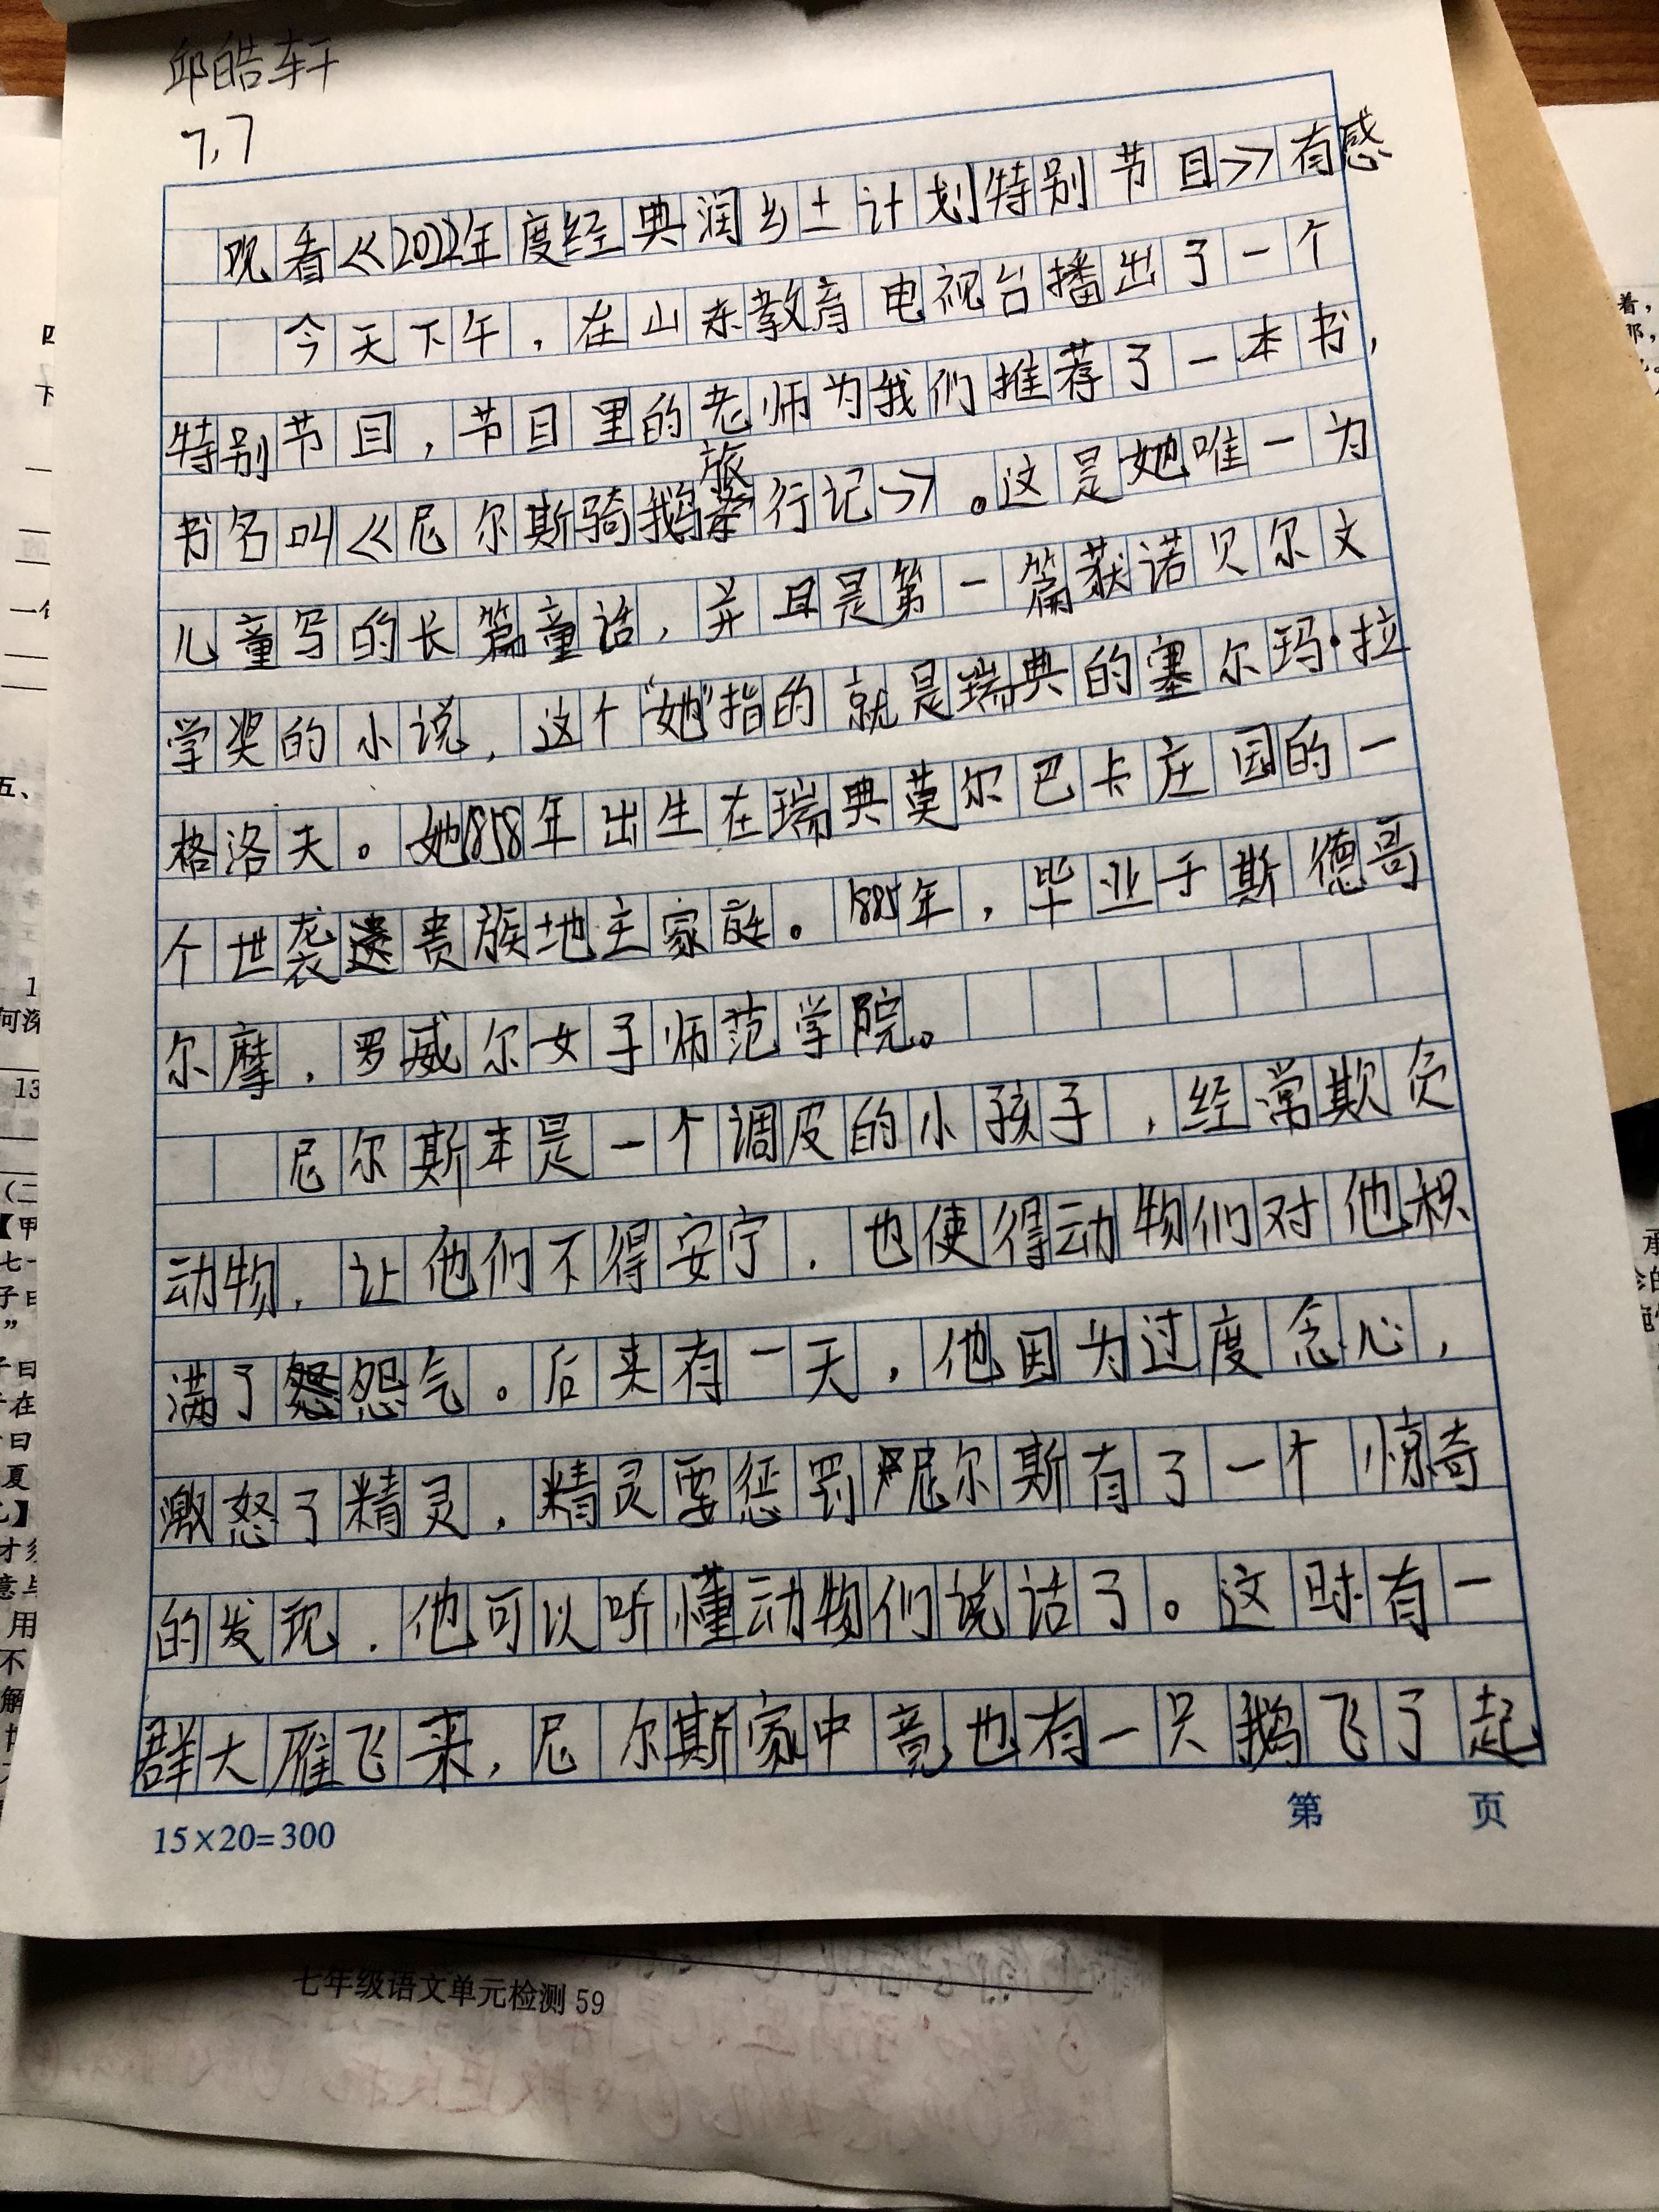 邱皓轩
7.7
观看《2022年度经典润乡土计划特别节目》有感
今天下午，在山东教育电视台播出了一个
特别节目，节目里的老师为我们推荐了一本书，
书名叫《尼尔斯骑鹅旅行记》。这是她唯一为
儿童写的长篇童话，并且是第一篇获诺贝尔文
学奖的小说，这个“她”指的就是瑞典的塞尔玛·拉
格洛夫。她1858年出生在瑞典莫尔巴卡庄园的一
个世袭贵族地主家庭。1885年，毕业于斯德哥
尔摩，罗威尔女子师范学院。
尼尔斯本是一个调皮的小孩子，经常欺负
动物，让他们不得安宁．也使得动物们对他积
满了怨气。后来有一天，他因为过度念心，
激怒了精灵，精灵要惩罚尼尔斯有了一个惊奇
的发现．他可以听懂动物们说话了。这时有一
群大雁飞来，尼尔斯家中竟也有一只鹅飞了起
15×20=300
第 页
七年级语文单元检测 59